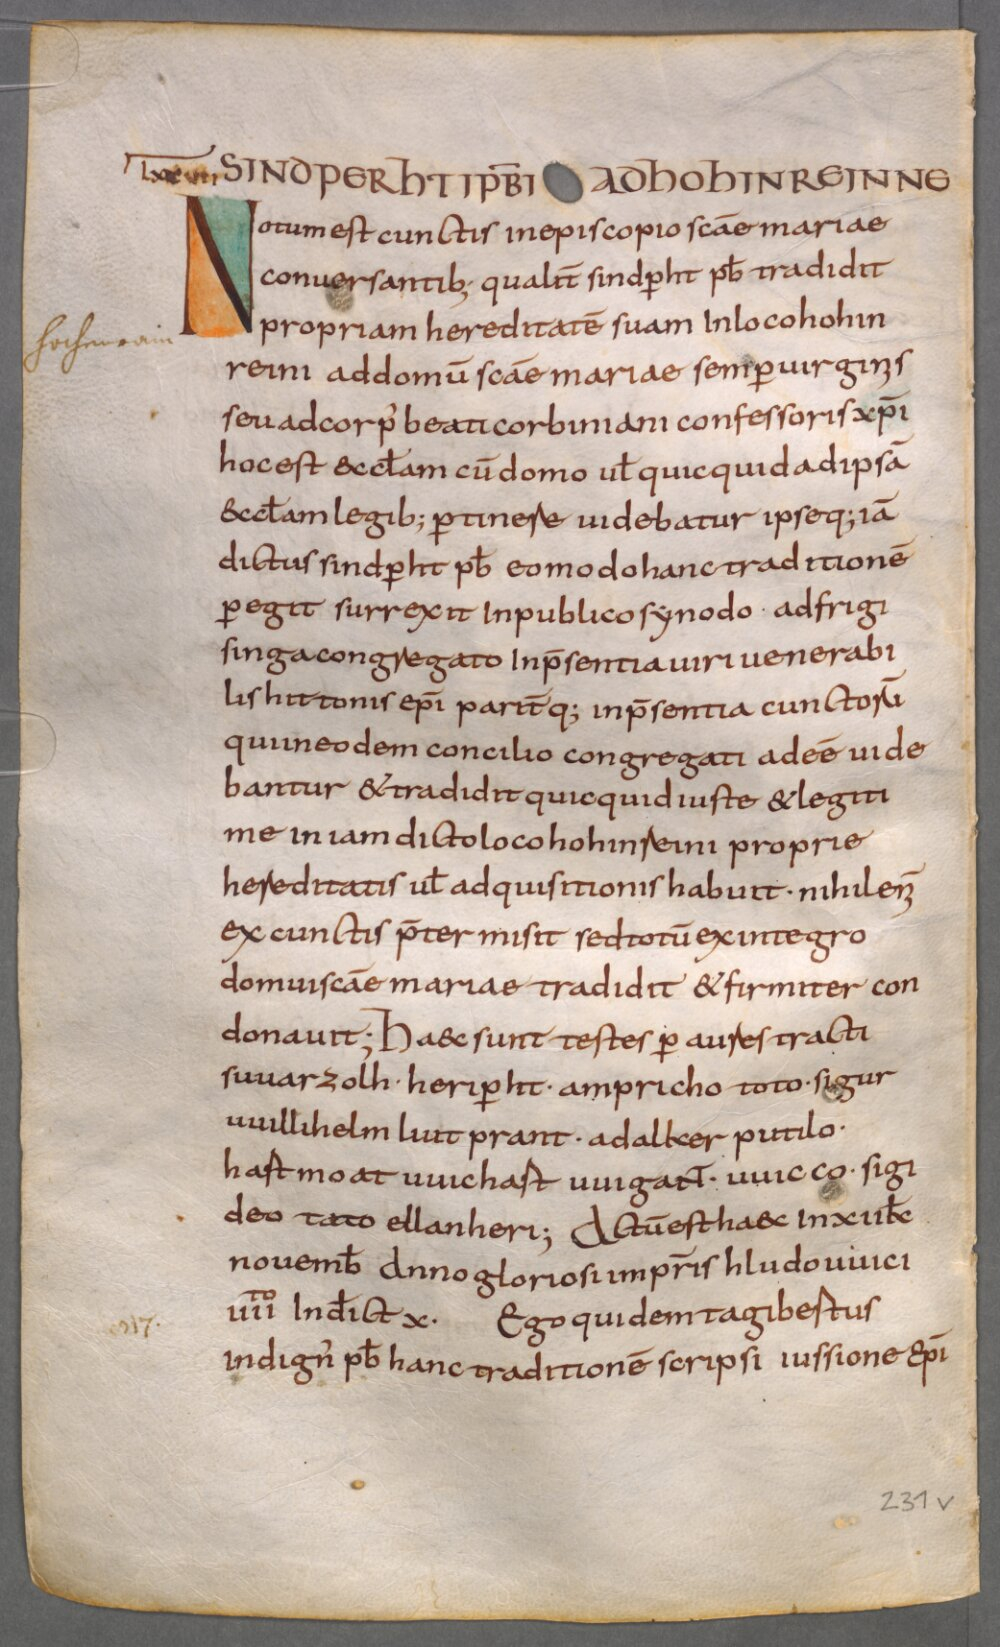 SINDPERHTI PR̄BI AD HOHINREINNE
Notum est cunctis in episcopio scāe mariae
conuersantib; qualit̄ sindꝑht pb̄ tradidit
hohenrain
propriam hereditatē suam In loco hohin
reini ad domū scāe mariae semꝑ uirginis
seu ad corp᾽ beati corbiniani confessoris xp̄i
hoc est &ccl̄am cū domo ul̄ quicquid ad ipsā
&ccl̄am legib; ꝑtinere uidebatur ipseq; iā
dictus sindꝑht pb̄ eo modo hanc traditionē
ꝑegit surrexit In publico synodo · ad frigi
singa congregato In p̄sentia uiri uenerabi
lis hittonis ep̄i parit̄q; in p̄sentia cunctorū
qui in eodem concilio congregati adeē uide
bantur & tradidit quicquid iuste & legiti
me in iam dicto loco hohinreini proprie
hereditatis ul̄ adquisitionis habuit · nihil eni̅
ex cunctis p̄termisit sed totū ex integro
domui scāe mariae tradidit & firmiter con
donauit; Haec sunt testes ꝑ aures tracti
suuarzolh · heriꝑht · ampricho toto · sigur
uuillihelm liutprant · adalker putilo ·
hastmoat uuichast uuigant · uuicco · sigi
deo tato ellanheri; Actū est haec In xii kl̄
nouemb̄ Anno gloriosi imp̄ris hludouuici
iiii to Indict x · Ego quidem tagibestus
817.
indign᾽ pb̄ hanc traditionē scripsi iussione ep̄i
231 v